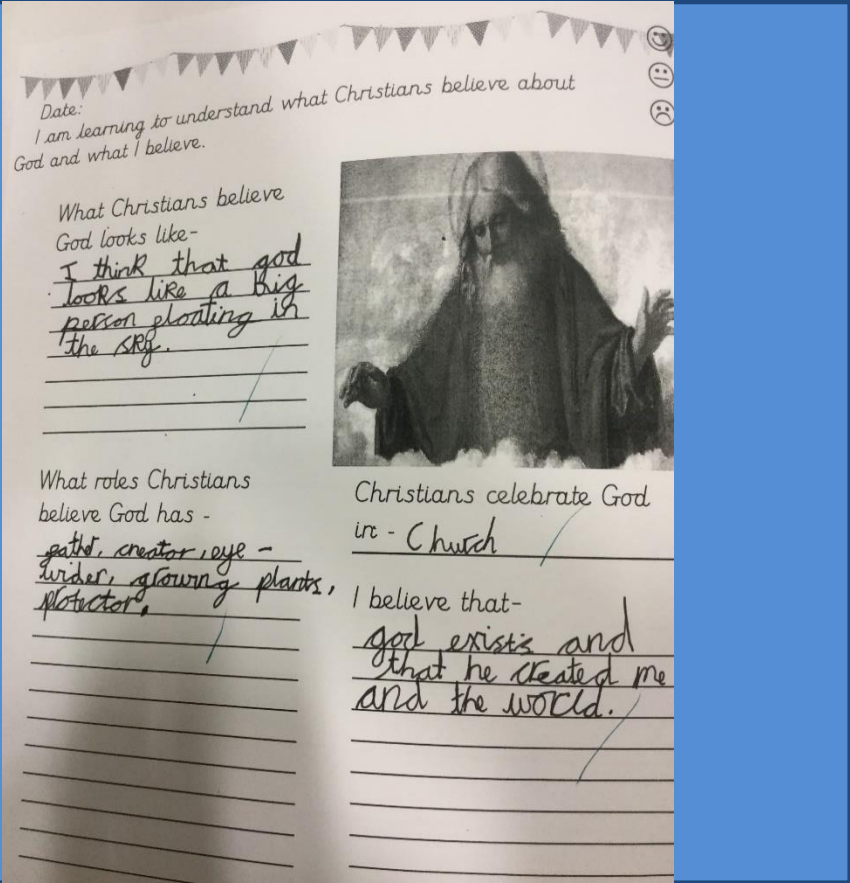 Date:
I am learning to understand what Christians believe about
God and what I believe.
What Christians believe
God looks like-
I think that god
looks like a big
person floating in
the sky.
What roles Christians
believe God has -
father, creator, eye -
wider, growing plants,
protector.
Christians celebrate God
in - Church
I believe that-
god exists and
that he created me
and the world.